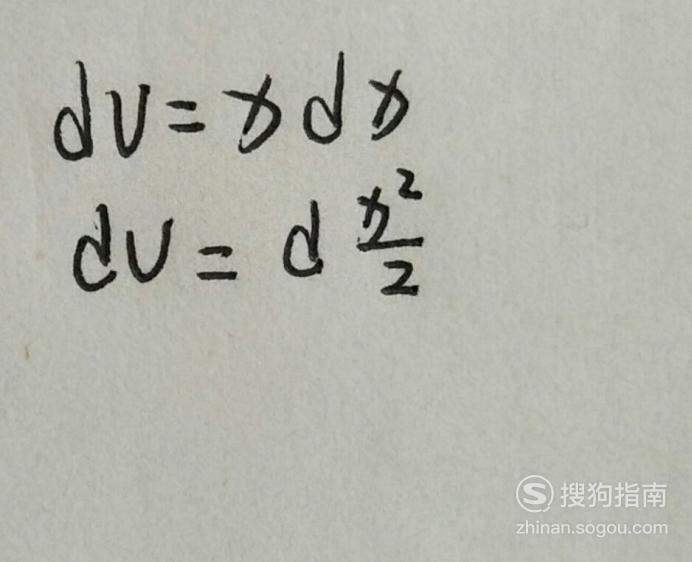 dv = x dx
dv = d x²/2
搜狗指南
zhinan.sogou.com